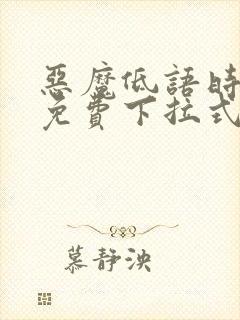 惡魔低語時
免費下拉式
慕靜泱